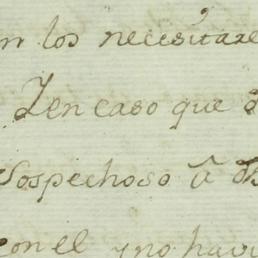 n los necesitare
Y en caso que
sospechoso â
con el y no havi